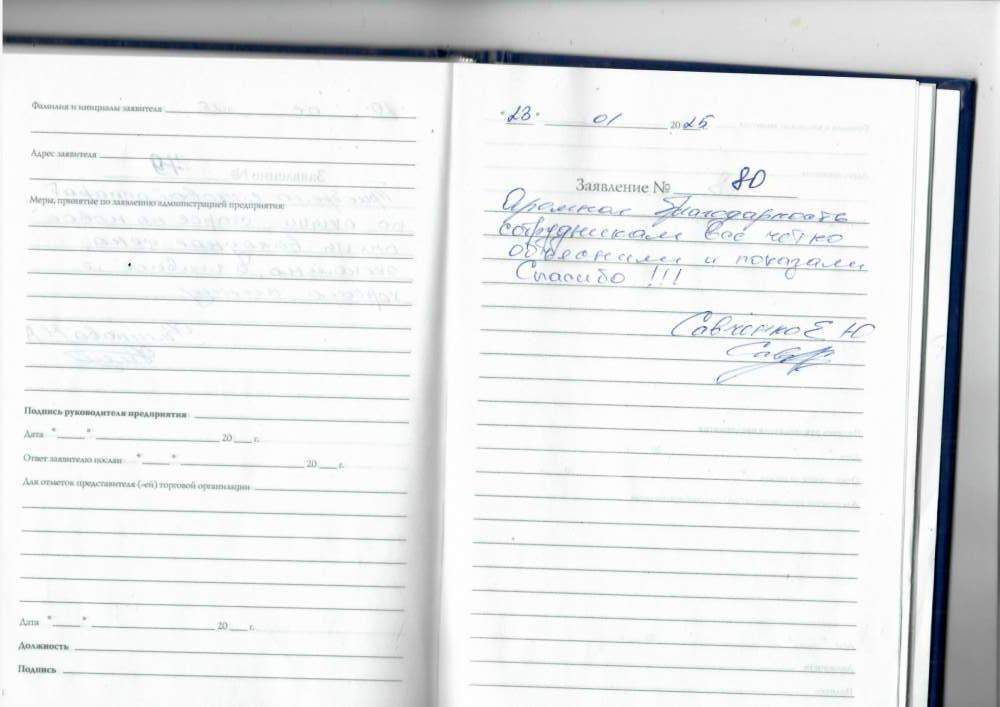 Фамилия и инициалы заявителя
Адрес заявителя
Меры, принятые по заявлению администрацией предприятия:
Подпись руководителя предприятия
Дата "___" ___ 20 ___ г.
Ответ заявителю послан "___" ___ 20 ___ г.
Для отметок представителя (-ей) торговой организации
Дата "___" ___ 20 ___ г.
Должность
Подпись
"23" 01 2025
Заявление № 80
Огромная благодарность
сотрудникам все чётко
объяснили и показали
Спасибо !!!
Савченко Е Ю